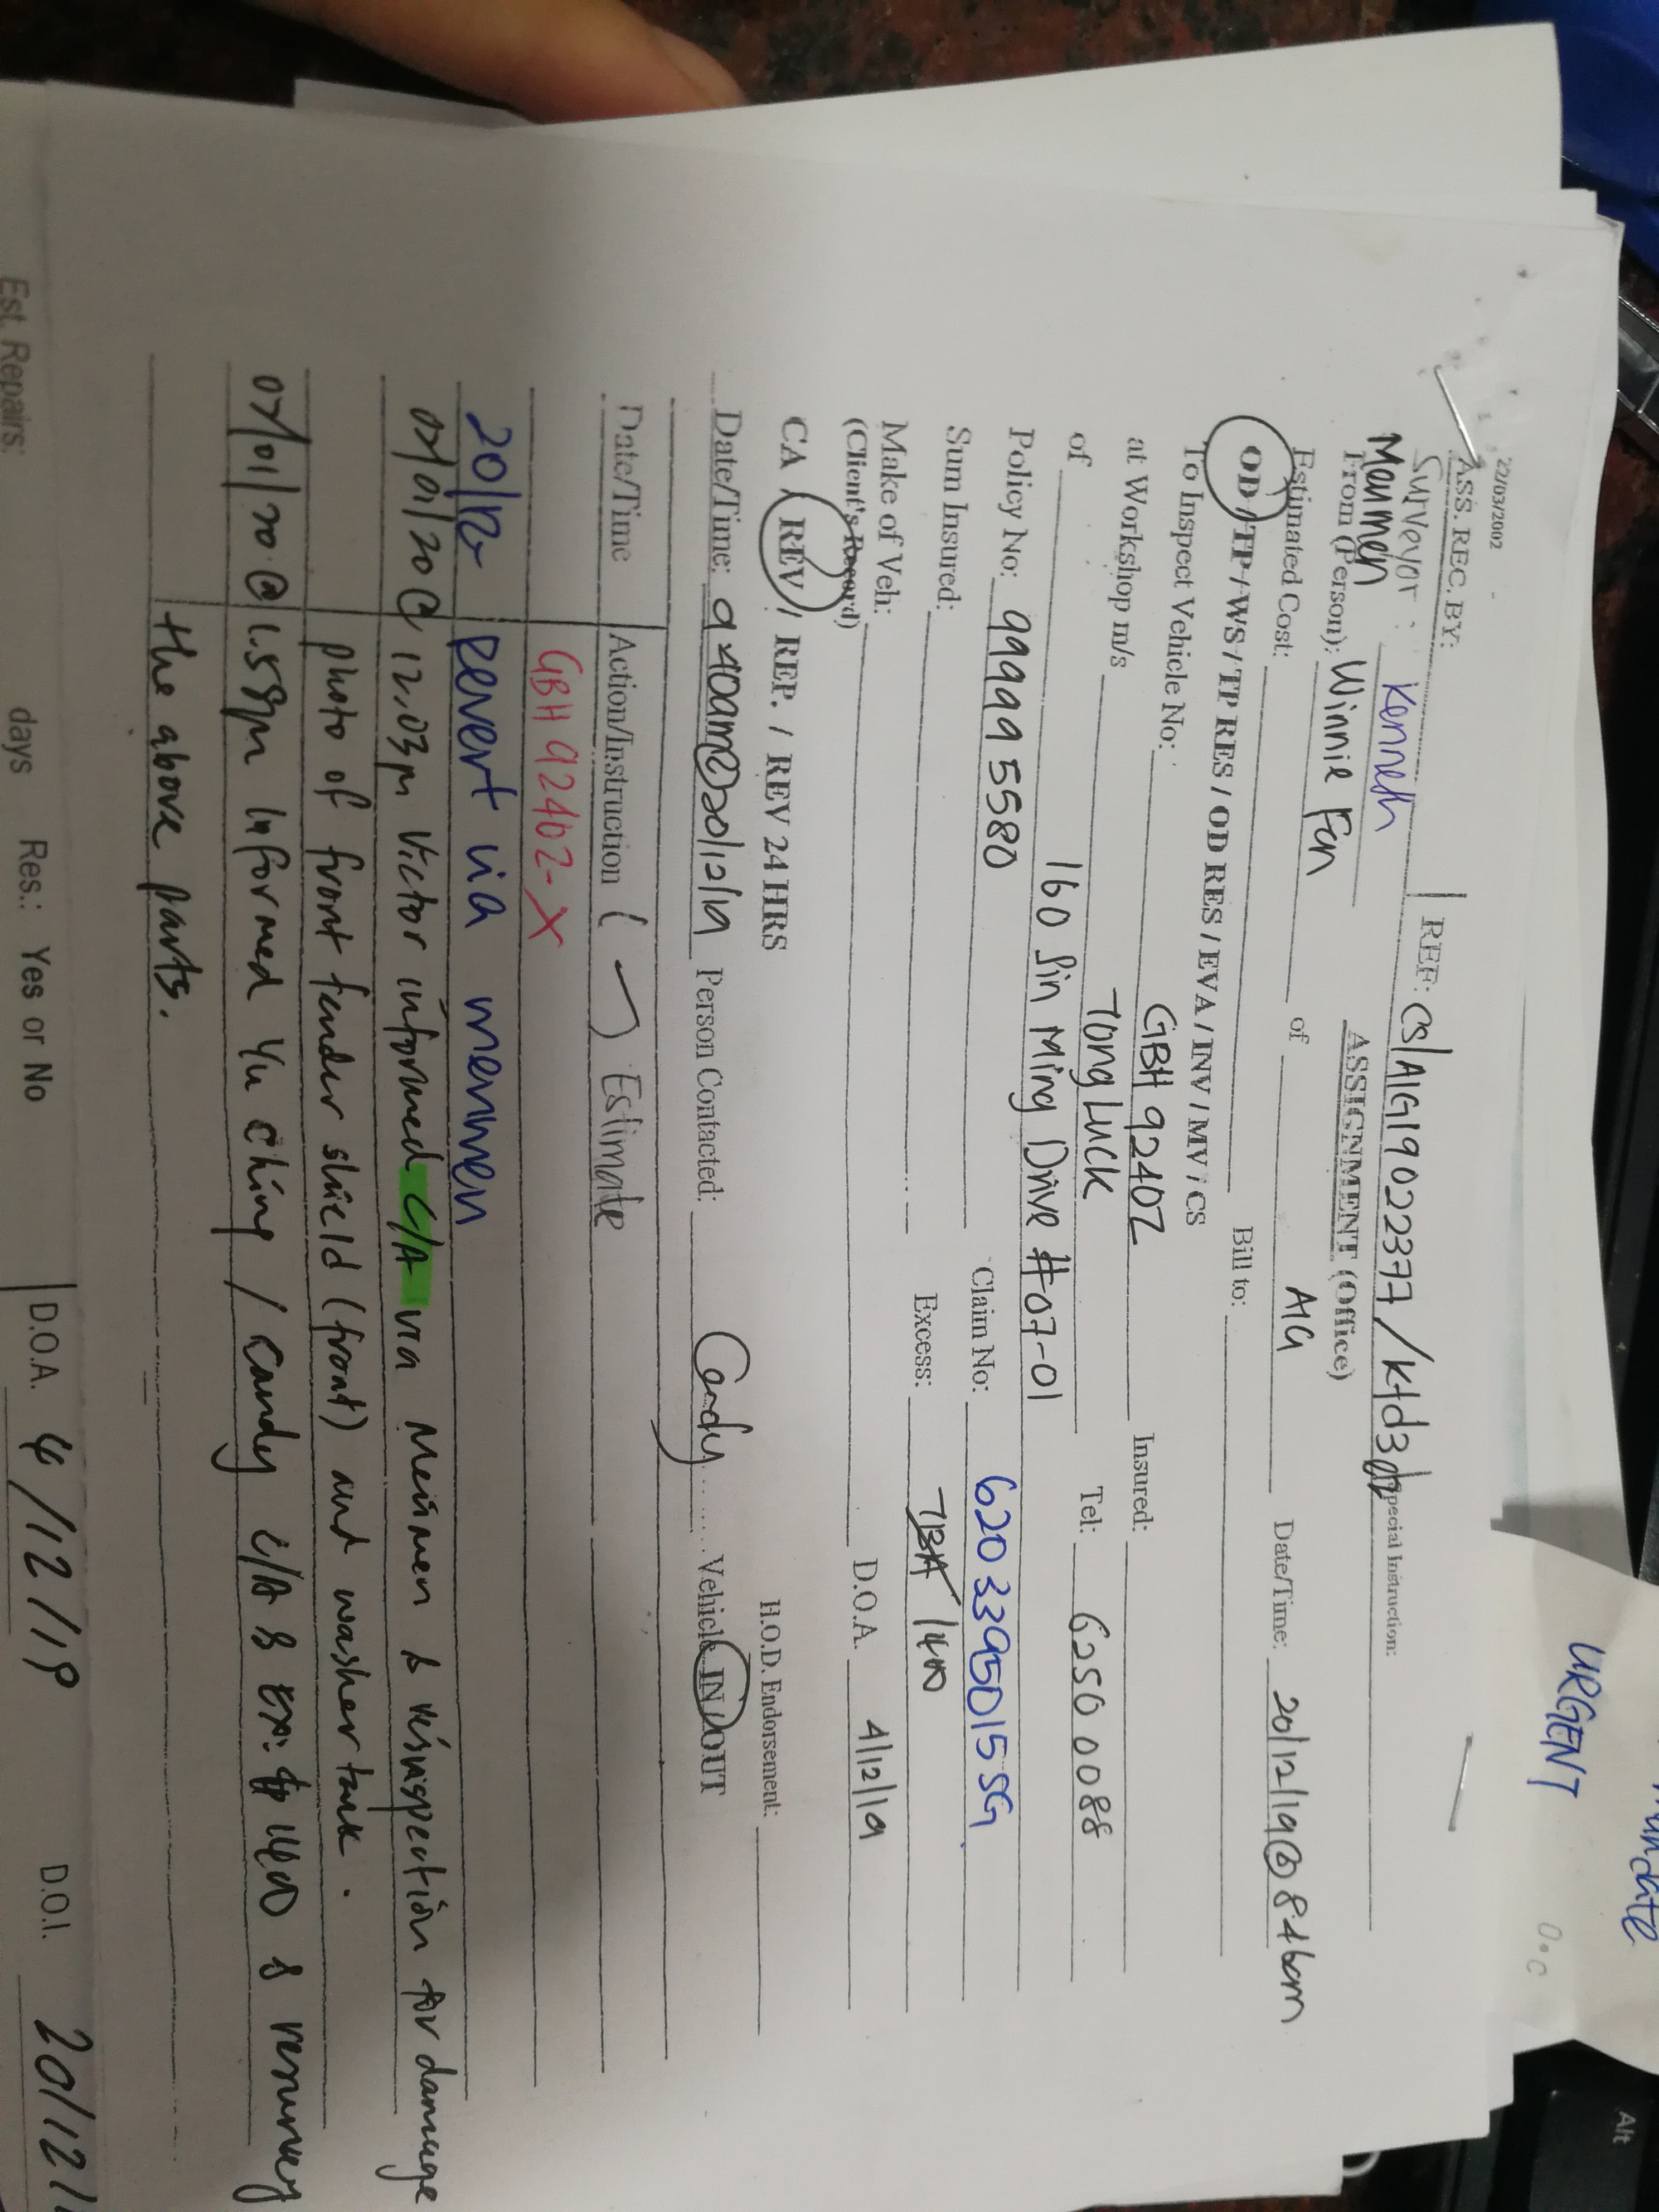 mandate
URGENT
22/03/2002
ASS. REC. BY:
REF: CS/AIG19022377/Ktd3
Special Instruction:
Surveyor: Kenneth
ASSIGNMENT (Office)
Merimen
From (Person): Winnie Fan of AIG Date/Time: 20/12/19 @ 846am
Estimated Cost: Bill to:
OD / TP / WS / TP RES / OD RES / EVA / INV / MV / CS
To Inspect Vehicle No: GBH 9240Z Insured:
at Workshop m/s Tong Luck Tel: 6250 0088
of 160 Sin Ming Drive #07-01
Policy No: 9999995580 Claim No: 6203395015SG
Sum Insured: Excess: TBA 1400
Make of Veh: D.O.A. 4/12/19
(Client's Record)
CA / REV / REP. / REV 24 HRS H.O.D. Endorsement:
Date/Time: 940am@20/12/19 Person Contacted: Vehicle IN OUT
Date/Time Action/Instruction ( ) Estimate
GBH 9240Z - X
20/12 Revert via merimen
07/01/20 @ 12.03pm Victor informed C/A via Merimen & reinspection for damage
photo of front fender shield (front) and washer tank.
07/01/20 @ 1.58pm Informed Yu Ching / Candy C/A & ex: $1400 & resurvey
the above parts.
Est. Repairs: days Res.: Yes or No D.O.A. 4/12/19 D.O.I. 20/12/
Alt